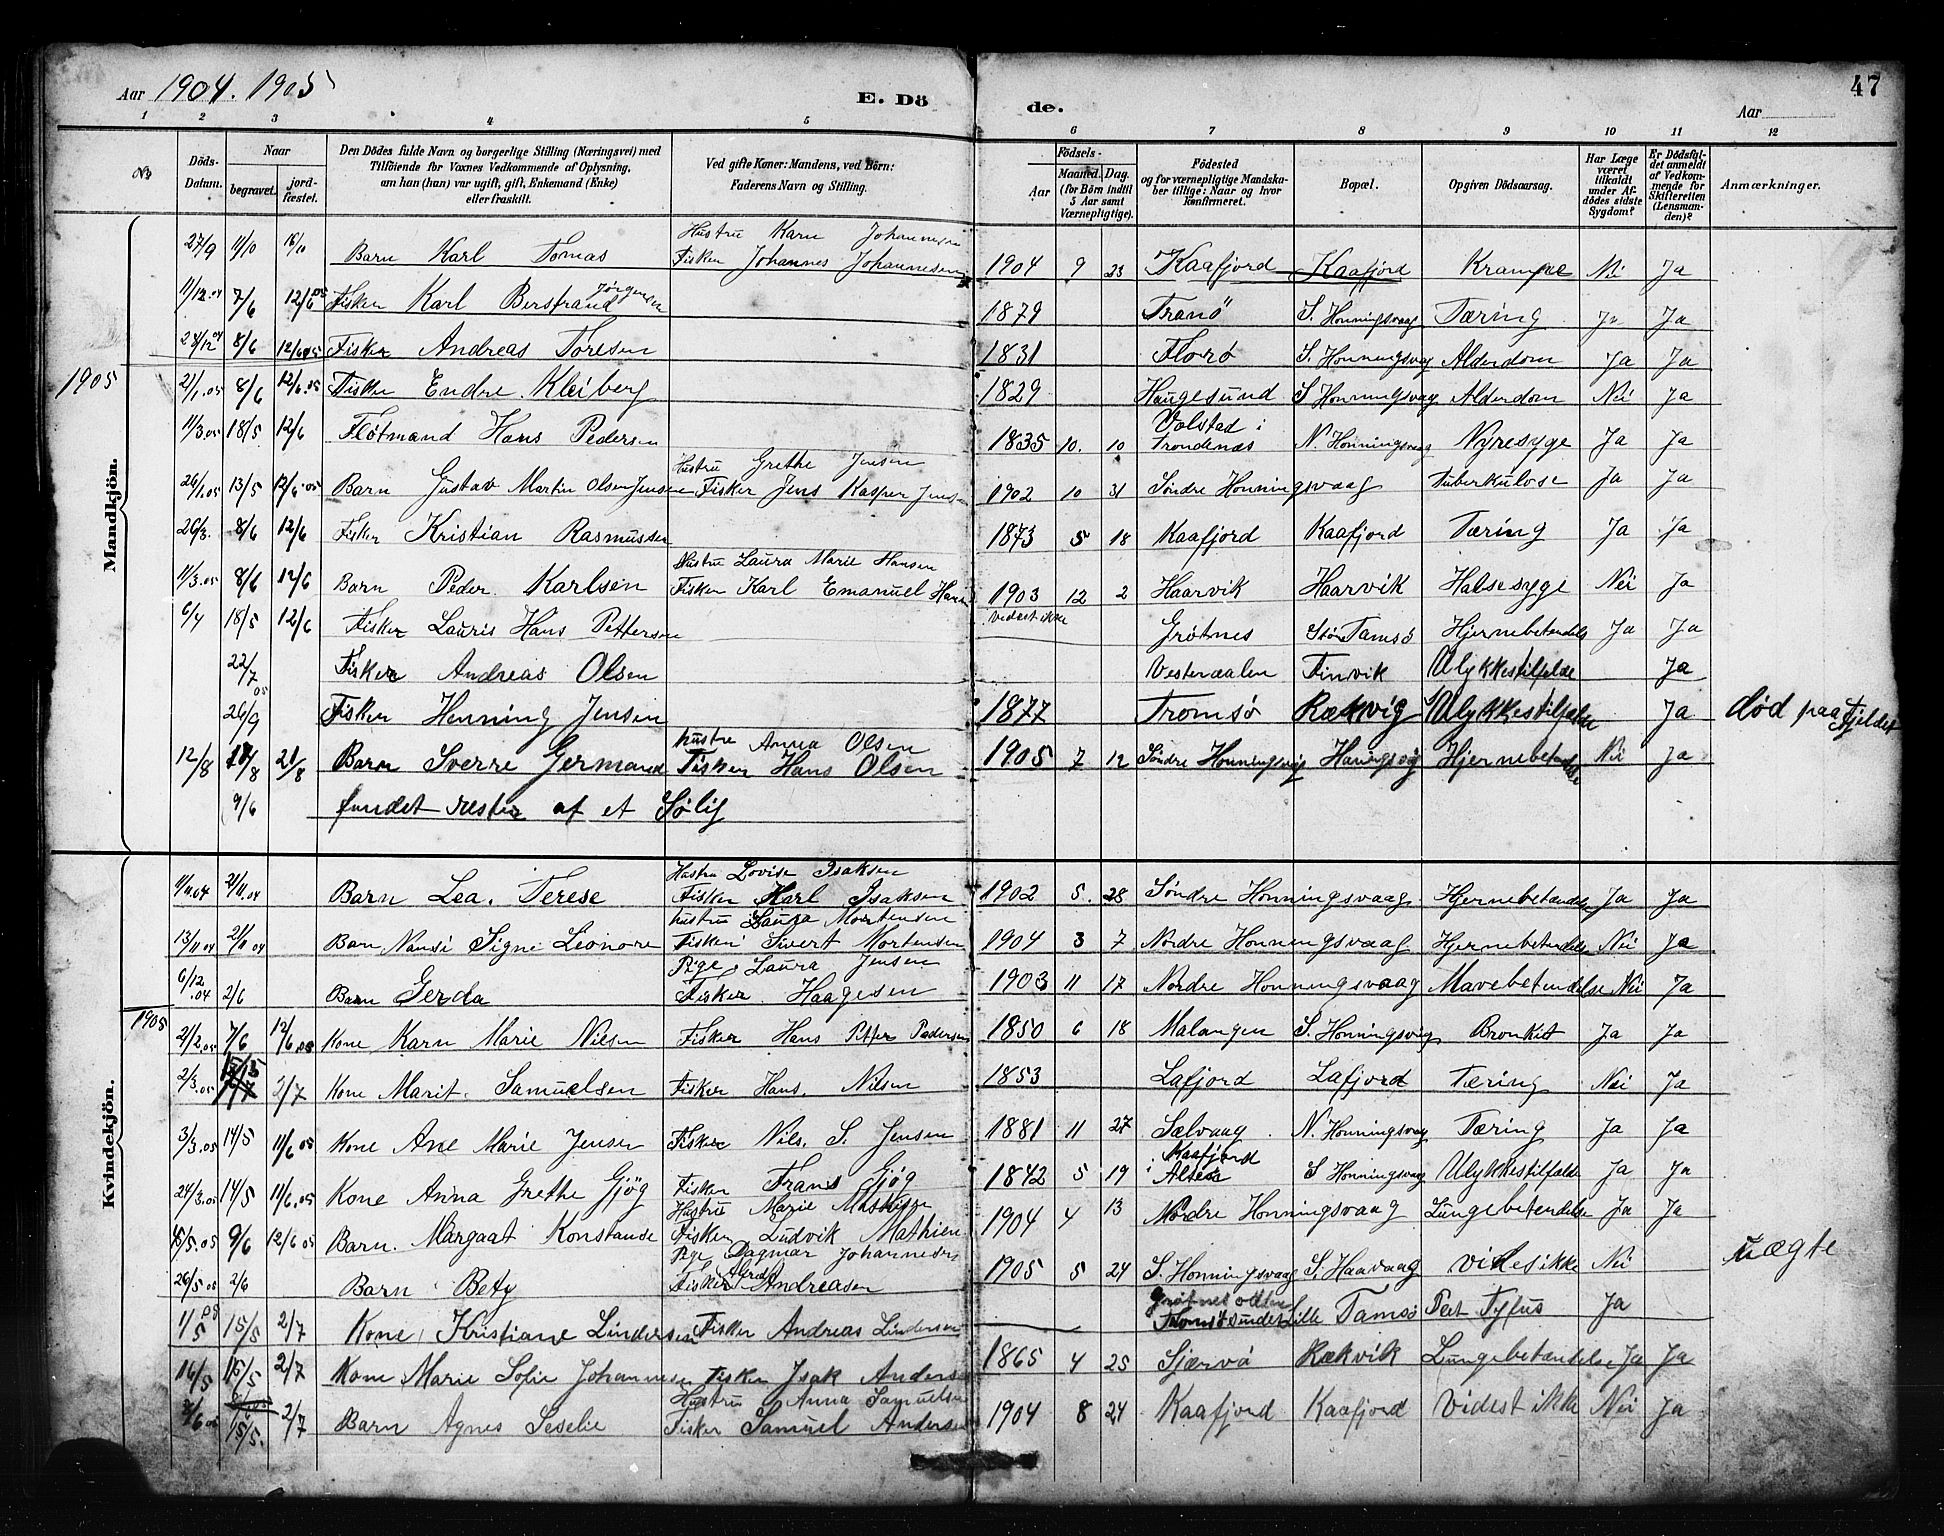 Aar 1904. 1905
E. Dö de.
Aar
47
1 2 3 4 5 6 7 8 9 10 11 12
No
Döds-Datum.
Naar
begravet.
jord-fæstet.
Den Dödes fulde Navn og borgerlige Stilling (Næringsvei) med
Tilföiende for Voxnes Vedkommende af Oplysning,
om han (hun) var ugift, gift, Enkemand (Enke)
eller fraskilt.
Ved gifte Koner: Mandens, ved Börn:
Faderens Navn og Stilling.
Födsels-
Aar
Maaned. Dag.
(for Börn indtil
5 Aar samt
Værnepligtige).
Födested
og for værnepligtige Mandska-
ber tillige: Naar og hvor
konfirmeret.
Bopæl.
Opgiven Dödsaarsag.
Har Læge
været
tilkaldt
under Af-
dödes sidste
Sygdom?
Er Dödsfal-
det anmeldt
af Vedkom-
mende for
Skifteretten
(Lensman-
den)?
Anmærkninger.
Mandkjön.
Hustru Karn Johannesen
27/9 11/10 16/10 Barn Karl Tomas Fisker Johannes Johannesen 1904 9 23 Kaafjord Kaafjord Krampe Nei Ja
11/12.04 7/6 12/6 05 Fisker Karl Berstrand Jørgensen 1879 Tranö S. Honningsvaag Tæring Ja Ja
28/12 04 8/6 12/6 05 Fisker Andreas Toresen 1831 Florø S. Honningsvag Alderdom Ja Ja
1905
21/1.05 8/6 12/6.05 Fisker Endre Kleiberg 1829 Haugesund S Honningsvag Alderdom Nei Ja
11/3.05 18/5 12/6 Fløtmand Hans Pedersen 1835 10. 10 Volstad i Trondenæs N. Honningsvaag Nyresyge Ja Ja
Hustru Grethe Jensen
26/1.05 13/5 12/6.05 Barn Gustav Martin Olsen Jensen Fisker Jens Kasper Jensen 1902 10 31 Søndre Honningsvaag Tuberkulose Ja Ja
26/3. 8/6 12/6 Fisker Kristian Rasmussen 1873 5 18 Kaafjord Kaafjord Tæring Ja Ja
Hustru Laura Marie Hansen
11/3.05 8/6 12/6 Barn Peder Karlsen Fisker Karl Emanuel Hansen 1903 12 2 Haarvik Haarvik Halsesyge Nei Ja
6/4 18/5 12/6 Fisker Lauris Hans Pettersen vedset ikke Grøtnes Stor Tamsø Hjernebetendelse Ja Ja
22/7 05 Fisker Andreas Olsen Vesteraalen Finvik Ulykkestilfelde Ja
26/9 Fisker Henning Jensen 1877 Tromsø Rækvig Ulykkestilfælde Ja død paa Fjeldet
Hustru Anna Olsen
12/8 17/8 21/8 Barn Sverre Germand Fisker Hans Olsen 1905 7 12 Søndre Honningsvig Haningsvig Hjernebetendelse Nei Ja
9/6 fundet rester af et Sølig
Kvindekjön.
Hustru Lovise Isaksen
11/11.04 21/11.04 Barn Lea. Terese Fisker Karl Isaksen 1902 5. 28 Søndre Honningsvaag Hjernebetændelse Ja Ja
hustru Laura Mortensen
13/11 04 21/11 04 Barn Nansi Signe Leonore Fisker Sivert Mortensen 1904 3 7 Nordre Honningsvaag Hjernebetendelse Nei Ja
Pige Laura Jensen
6/12.04 2/6 Barn Gerda Fisker Haagesen 1903 11 17 Nordre Honningsvaag Mavebetendelse Nei Ja
1905
2/2.05 7/6 12/6.05 Kone Karn Marie Nilsen Fisker Hans Petter Pedersen 1850 6 18 Malangen S. Honningsvig Bronkit Ja Ja
2/3.05 2/7 Kone Marit. Samuelsen Fisker Hans. Nilsen 1853 Lafjord Lafjord Tæring Nei Ja
3/3.05 14/5 11/6 05 Kone Ane Marie Jensen Fisker Nils. S. Jensen 1881 11 27 Sælvaag N. Honningsvaag Tæring Ja Ja
24/3.05 14/5 11/6.05 Kone Anna Grethe Gjøg Fisker Frans Gjøg 1842 5 19 Kaafjord i Alten S Honningsvaag Ulykkestilfelde Ja Ja
Hustru Marie
9/6 12/6 05 Barn. Margaat Konstanse Fisker Ludvik Mathisen 1904 4 13 Nordre Honningsvaag Lungebetendelse Ja Ja
Pige Dagmar Johannesen
26/5 05 2/6 Barn Bety Fisker Alfred Andreasen 1905 5 24 S. Honningsvaag S. Haavaag vides ikke Nei uægte
1/5 15/5 2/7 Kone Kristiane Lindersen Fisker Andreas Lindersen Grøtnes Tromsøsundet Lille Tamsø Pest Tyfus Ja
16/5 15/5 2/7 Kone Marie Sofie Johannesen Fisker Isak Andersen 1865 4 25 Sjærvø Rækvik Lungebetændelse Ja Ja
Hustru Anna Samuelsen
15/5. 2/7 Barn Agnes Seselie Fisker Samuel Andersen 1904 8 24 Kaafjord Kaafjord Videst ikke Nei Ja